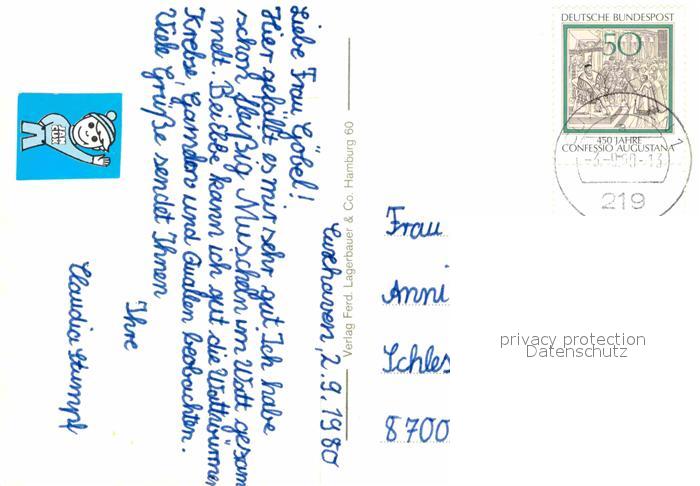 Cuxhaven, 2.9.1980
Liebe Frau Göbel!
Hier gefällt es mir sehr gut. Ich habe
schon fleißig Muscheln im Watt gesam
melt. Bei Ebbe kann ich gut die Wattwürmer
Krebse, Garnelen und Quallen beobachten.
Viele Grüße sendet Ihnen
Ihre
Claudia Stumpf
Verlag Ferd. Lagerbauer & Co. Hamburg 60
DEUTSCHE BUNDESPOST
50
450 JAHRE
CONFESSIO AUGUSTANA
219
Frau
Anni
Schles
8700
privacy protection
Datenschutz